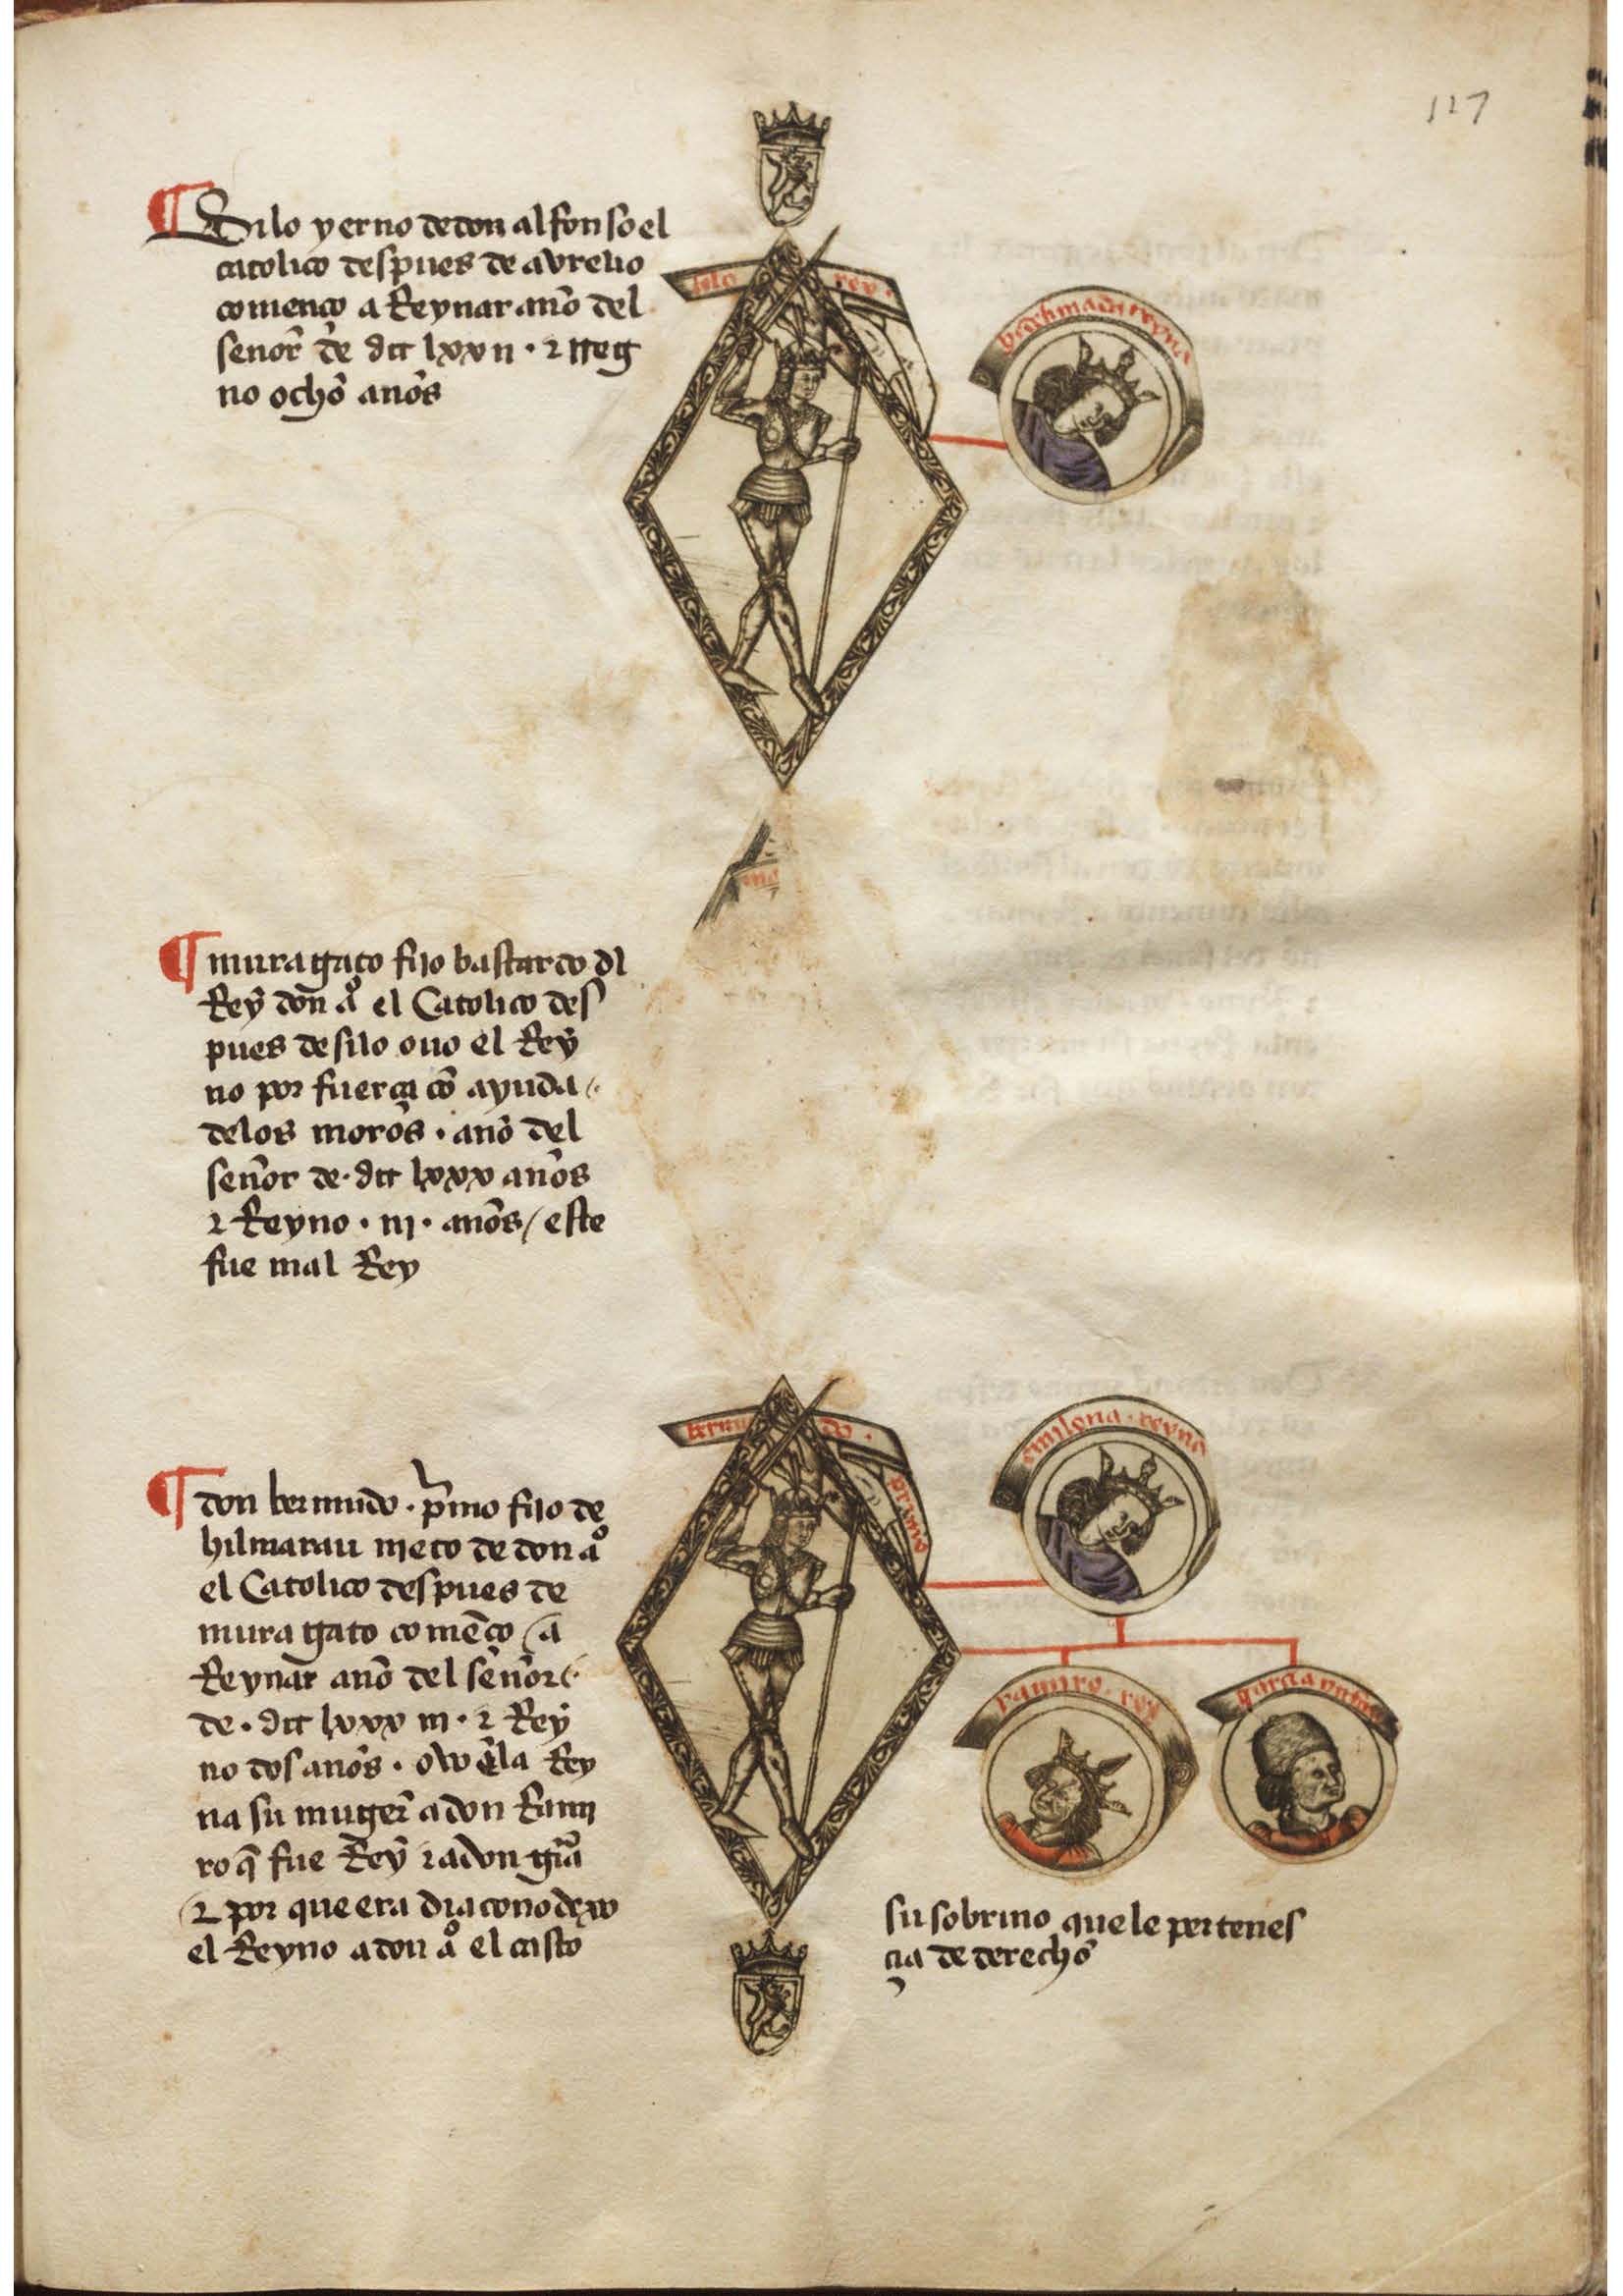 117
¶ Silo yerno dedon alfonso el
catolico despues de avrelio
començo a Reynar año del
señor de dcc lxxii · ⁊ rreg
no ocho años
silo rey ·
¶ muragato fijo bastardo dl
Rey don aº el Catolico des
pues de silo ouo el Rey
no por fuerça cõ ayuda
delos moros · año del
señor de · dcc lxxx años
⁊ Reyno · iij · años / este
fue mal Rey
¶ don bermudo · pꝛmo fijo de
hilmarau nieto de don aº
el Catolico despues de
muragato comẽço a
Reynar año del señor
de · dcc lxxx iii · ⁊ Rey
no dos años · ovo ẽla Rey
na su muger a don Rami
ro q̃ fue Rey ⁊ adon gꝛ̃a
⁊ por que era diacono dexo
el Reyno a don aº el casto
bermu do · primo
reyna
ramiro · rey
garcia
su sobrino que le pertenes
çia de derecho